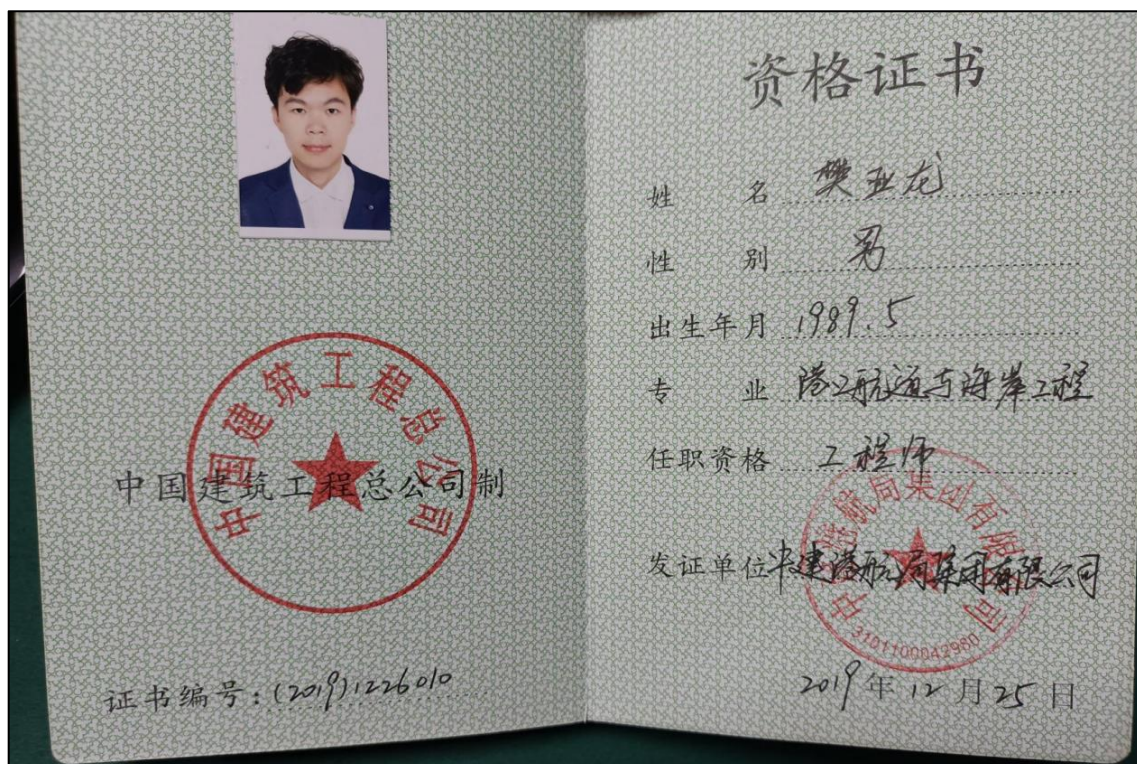 中国建筑工程总公司
中国建筑工程总公司制
证书编号:(2019)1226010
资格证书
姓 名 樊亚龙
性 别 男
出生年月 1989.5
专 业 港口航道与海岸工程
任职资格 工程师
发证单位 中建港航局集团有限公司
中建港航局集团有限公司
3101100042980
2019年12月25日